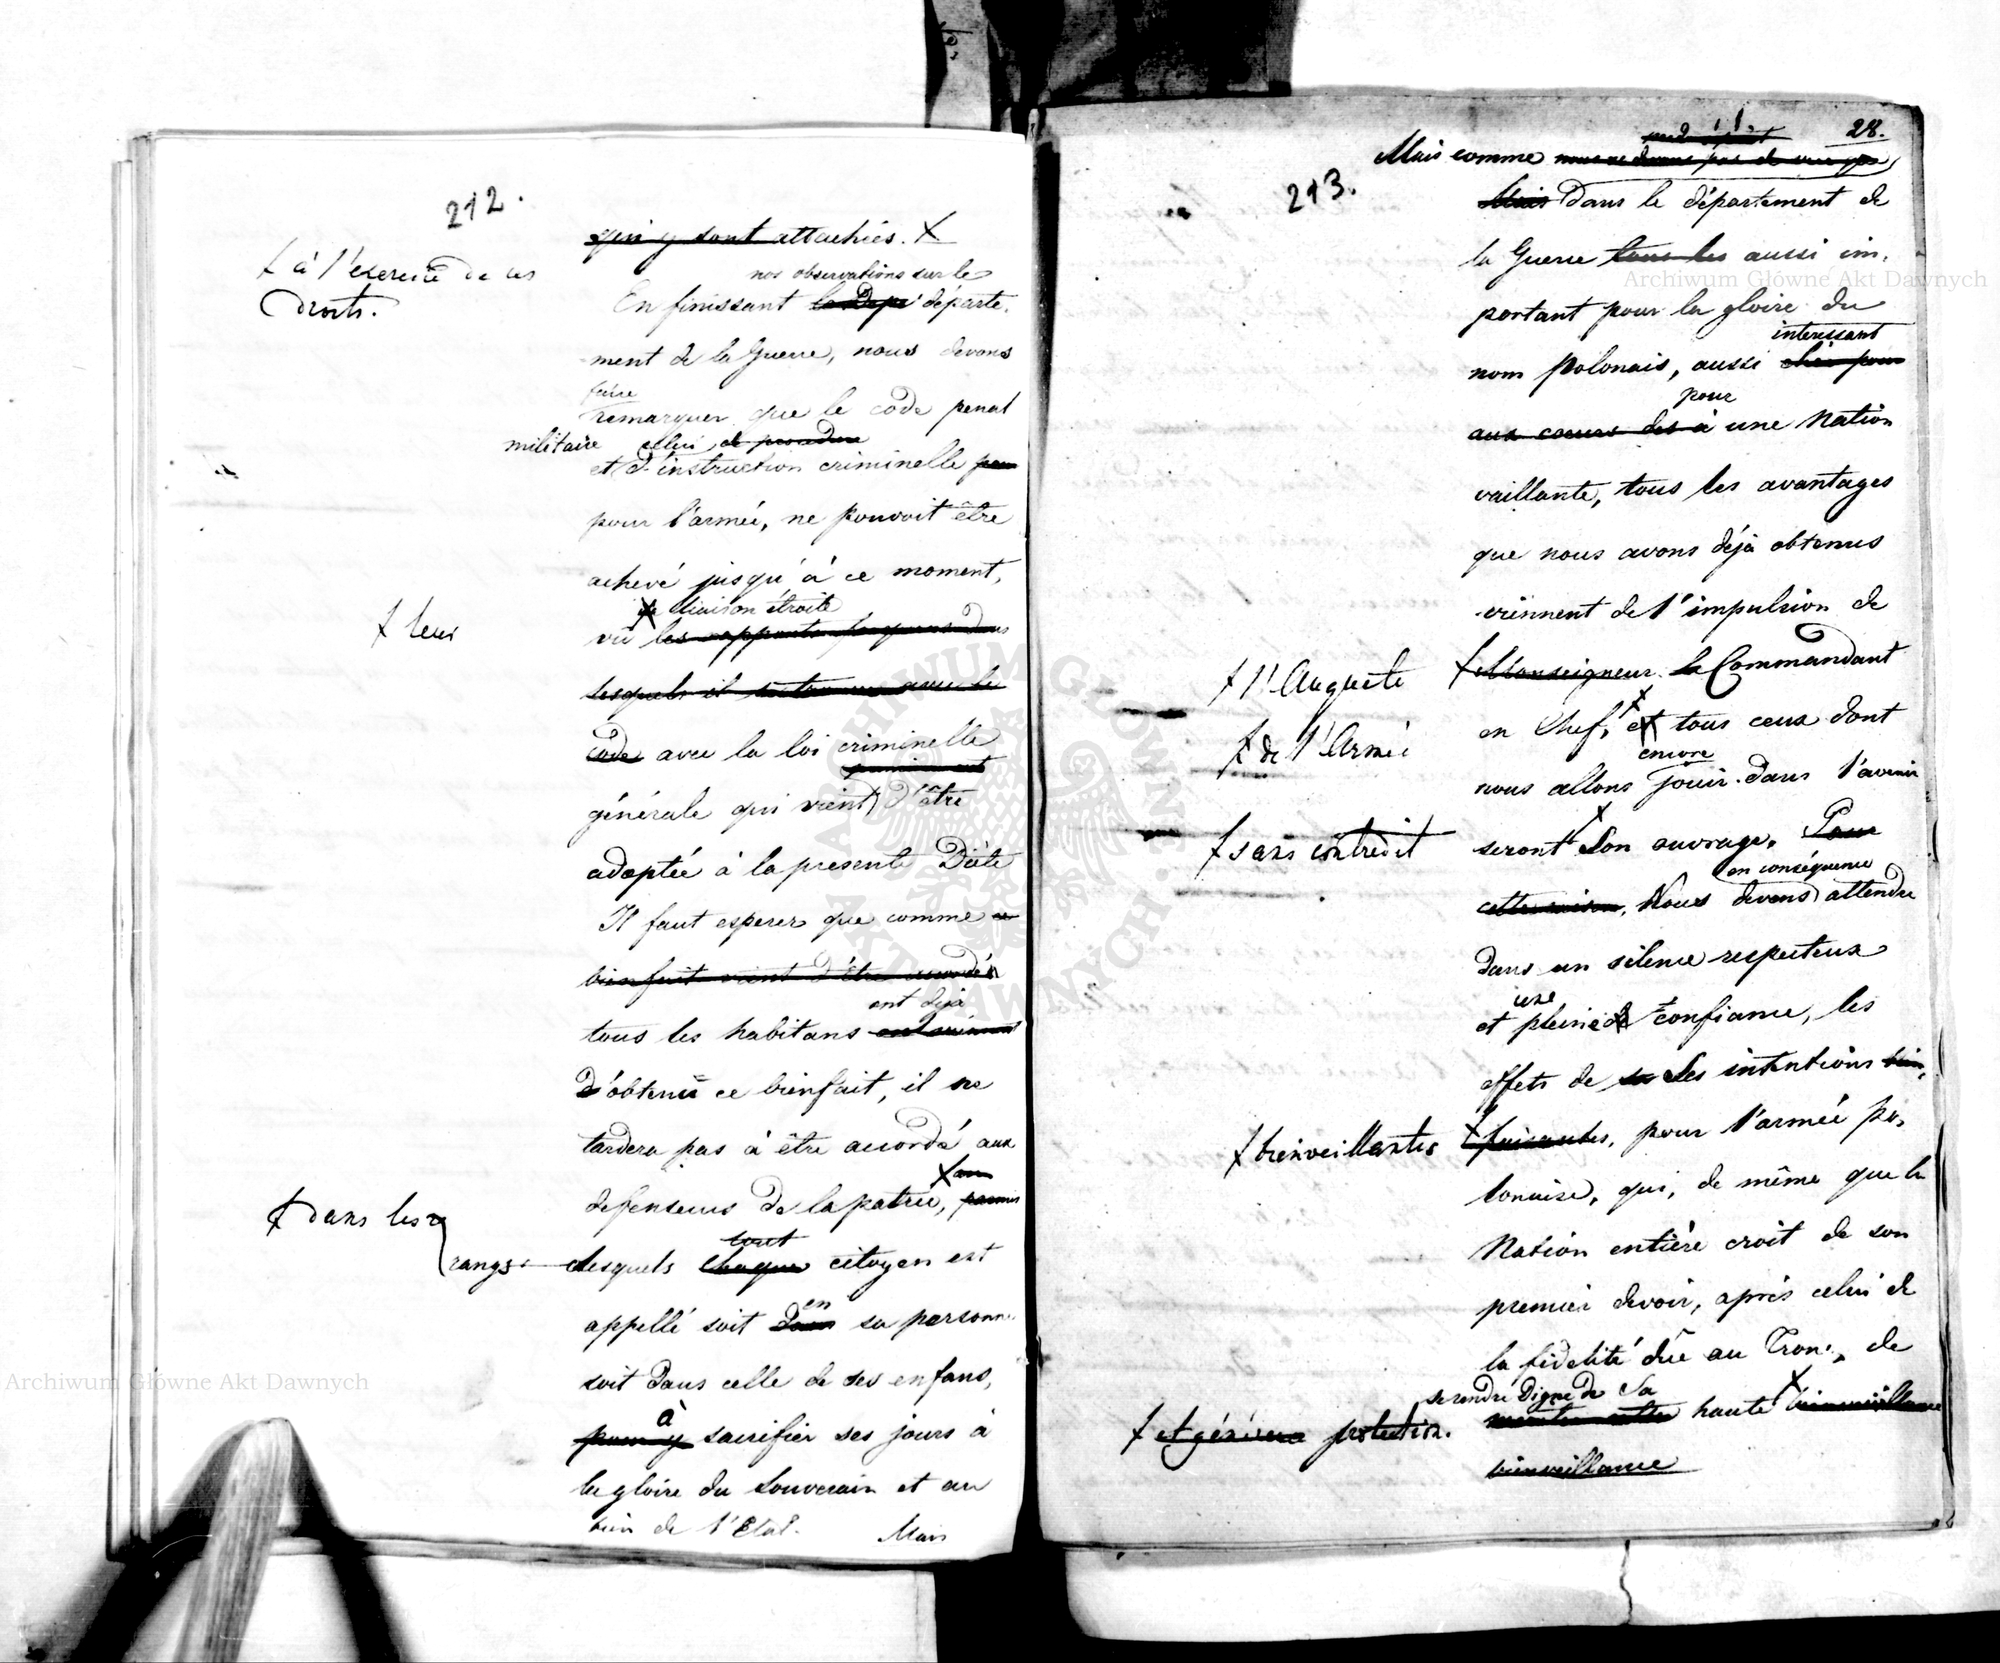 212.
qui y sont attachés. X
à l'exercice de ces
droits.
nos observations sur le
En finissant départe-
ment de la Guerre, nous devons
faire
remarquer que le code penal
militaire celui de procedure
et d'instruction criminelle
pour l'armée, ne pouvoit être
achevé jusqu'à ce moment,
liaison étroite
leur
vû les rapports
lesquels il avec le
code avec la loi criminelle
générale qui vient d'être
adoptée à la presente Diète
Il faut esperer que comme ce
bienfait vient d'être accordé
ont déja
tous les habitans
d'obtenu ce bienfait, il ne
tardera pas à être accordé aux
defenseurs de la patrie, parmi
dans les
tout
rangs desquels chaque citoyen est
en
appellé soit dans sa personne
soit dans celle de ses enfans,
à
pour y sacrifier ses jours à
la gloire du Souverain et au
bien de l'Etat.
Mais
28.
213.
Mais comme nous ne devons pas
Mais Dans le département de
la Guerre tous les aussi im-
portant pour la gloire du
interessant
nom polonais, aussi cher pour
pour
aux coeurs des à une Nation
vaillante, tous les avantages
que nous avons déjà obtenus
viennent de l'impulsion de
l'Auguste
Monseigneur le Commandant
en Chef, et tous ceux dont
de l'Armée
encore
nous allons jouir dans l'avenir
sans contredit
seront Son ouvrage. Pour
en conséquence
cette raison, Nous devons attendre
dans un silence respectueux
une
et pleine de confiance, les
effets de Ses intentions bien-
bienveillantes
faisantes, pour l'armée po-
lonaise, qui, de même que la
Nation entière croit de son
premier devoir, après celui de
la fidelité dûe au Trone, de
se rendre digne de Sa
mériter cette haute bienveillance
et généreuse protection.
bienveillance
Archiwum Główne Akt Dawnych
Archiwum Główne Akt Dawnych
ARCHIWUM GŁÓWNE AKT DAWNYCH